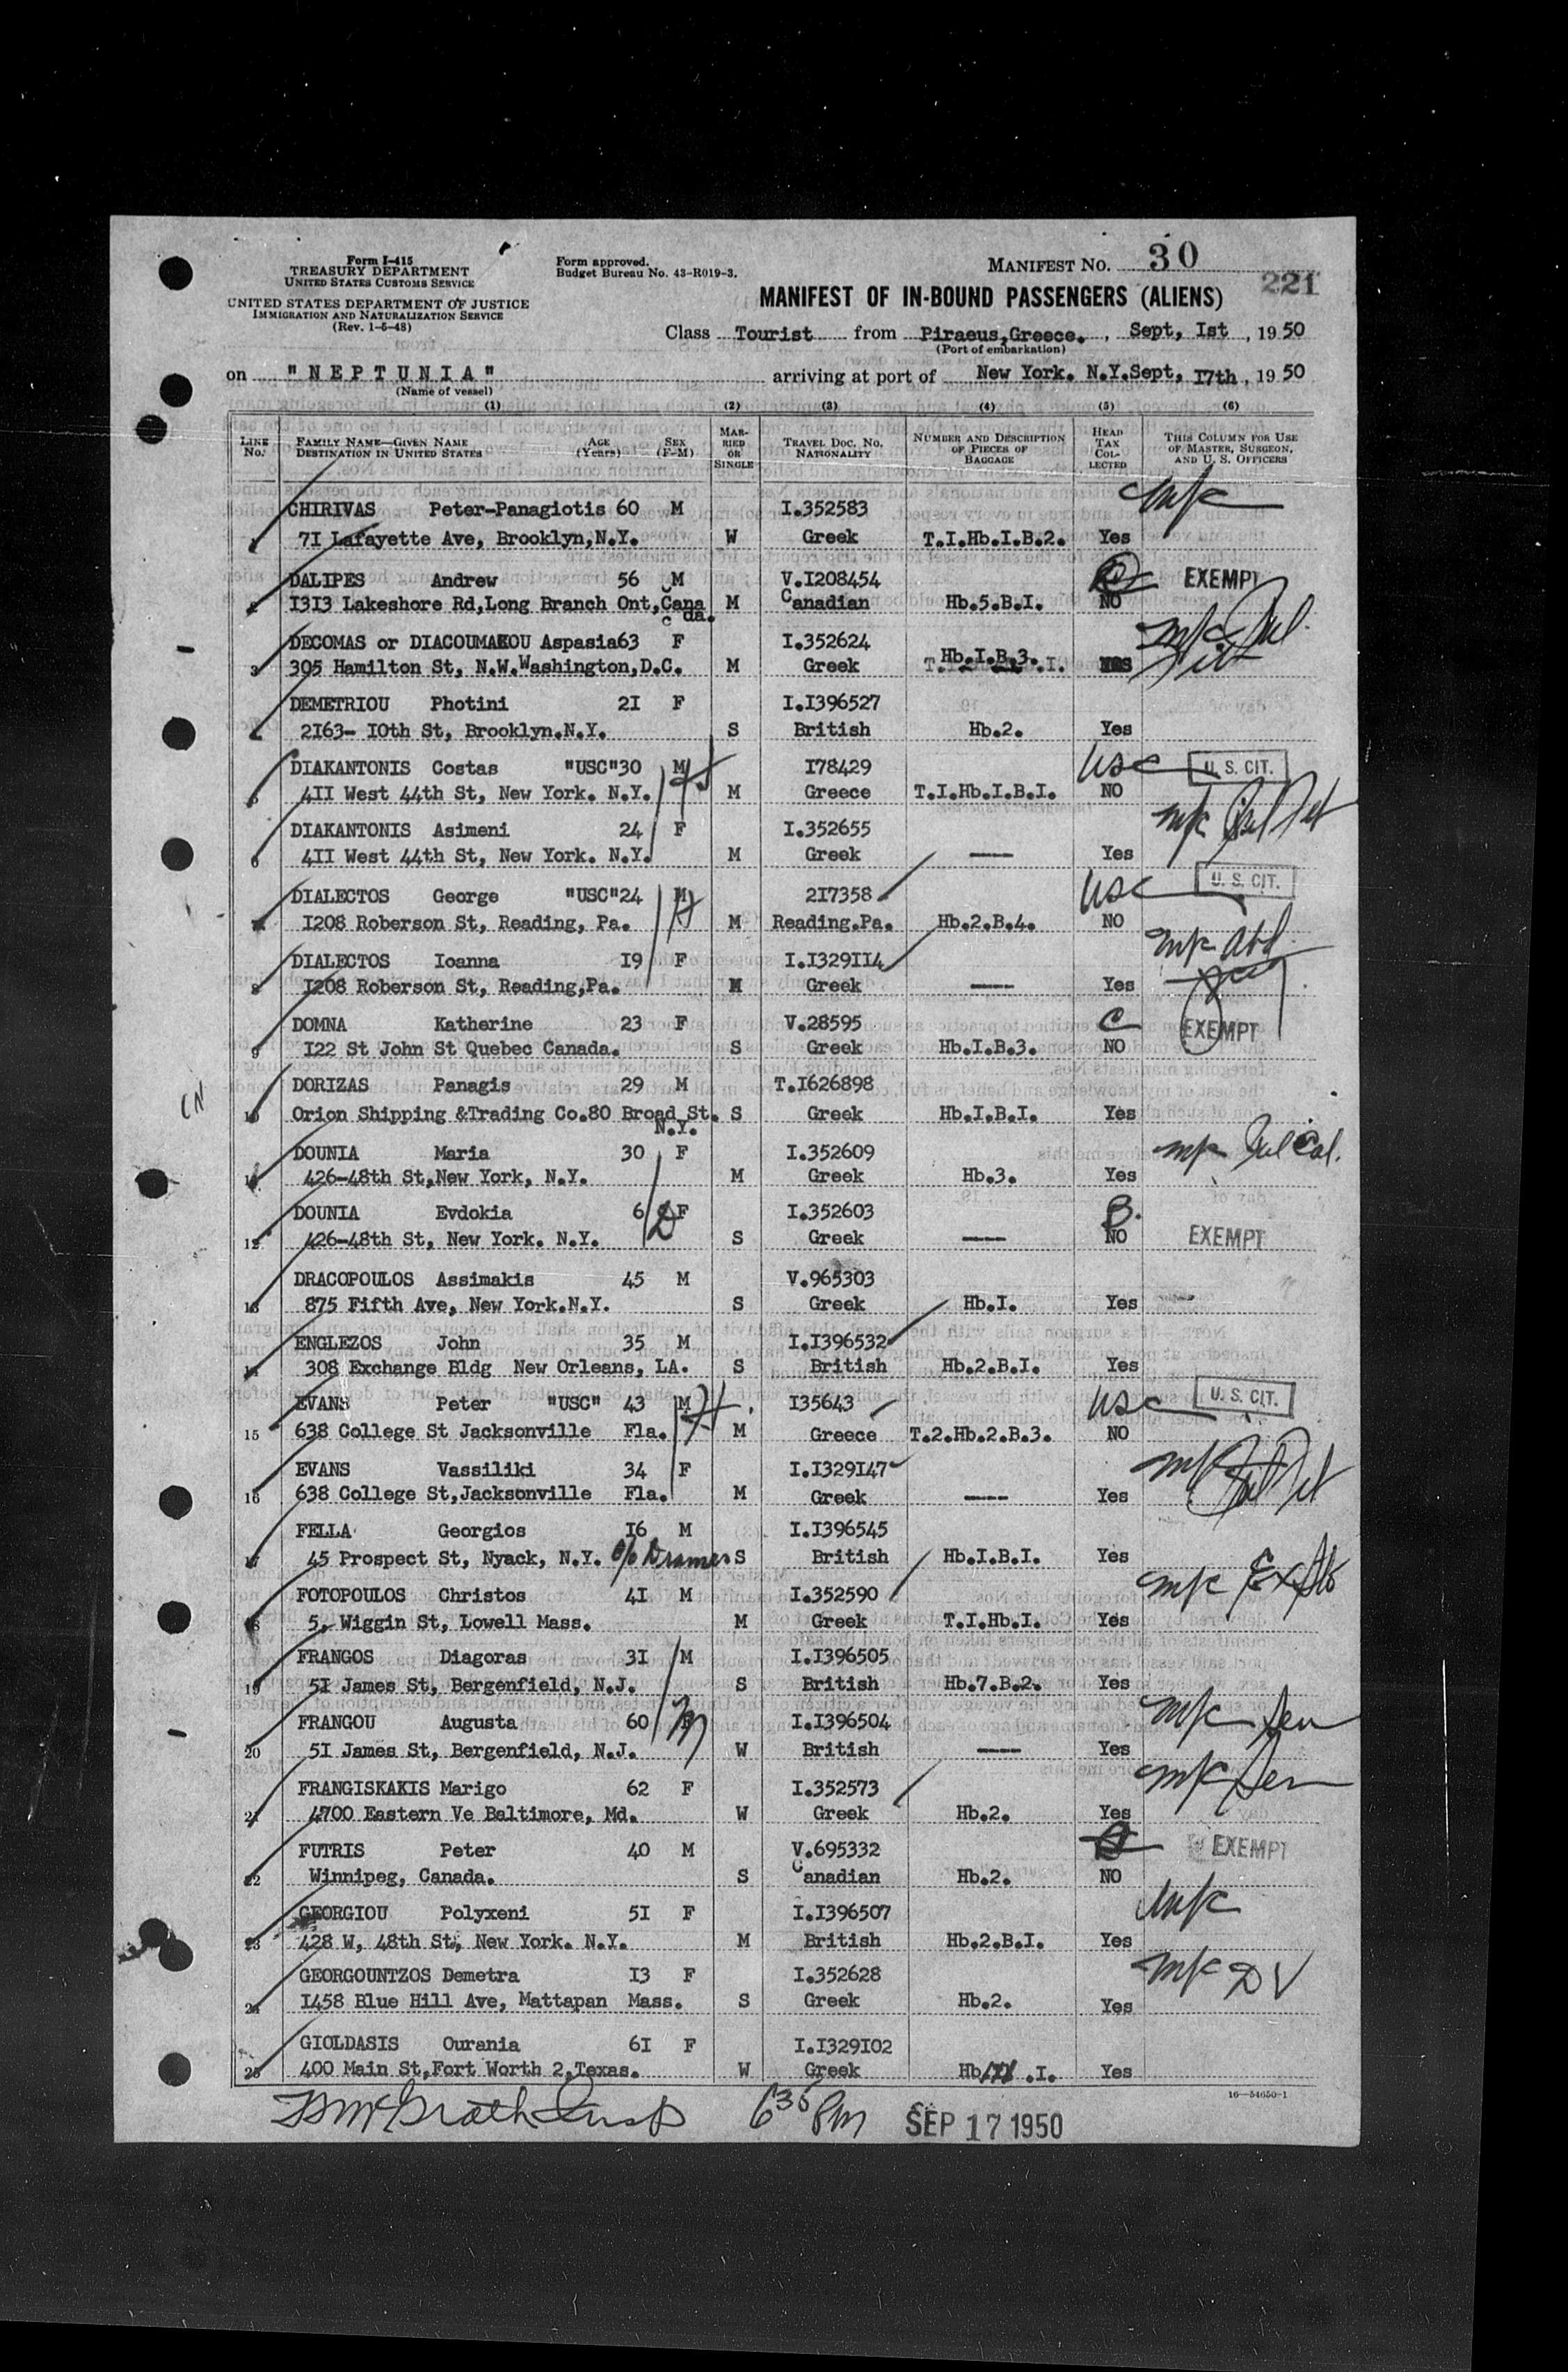 Form I-415
TREASURY DEPARTMENT
UNITED STATES CUSTOMS SERVICE
UNITED STATES DEPARTMENT OF JUSTICE
IMMIGRATION AND NATURALIZATION SERVICE
(Rev. 1-5-48)
Form approved.
Budget Bureau No. 43-R019-3.
MANIFEST NO. 30
221
MANIFEST OF IN-BOUND PASSENGERS (ALIENS)
Class Tourist from Piraeus,Greece. , Sept, Ist , 19 50
(Port of embarkation)
on "NEPTUNIA" arriving at port of New York. N.Y. Sept, I7th , 19 50
(Name of vessel)
(1) (2) (3) (4) (5) (6)
LINE No. FAMILY NAME—GIVEN NAME DESTINATION IN UNITED STATES AGE (Years) SEX (F-M) MARRIED OR SINGLE TRAVEL DOC. NO. NATIONALITY NUMBER AND DESCRIPTION OF PIECES OF BAGGAGE HEAD TAX COLLECTED THIS COLUMN FOR USE OF MASTER, SURGEON, AND U. S. OFFICERS
CHIRIVAS Peter-Panagiotis 60 M I.352583
1 7I Lafayette Ave, Brooklyn,N.Y. W Greek T.I.Hb.I.B.2. Yes
DALIPES Andrew 56 M V.I208454 EXEMPT
2 I3I3 Lakeshore Rd,Long Branch Ont,Cana da. M Canadian Hb.5.B.I. NO
DECOMAS or DIACOUMAKOU Aspasia63 F I.352624
3 305 Hamilton St, N.W.Washington,D.C. M Greek Hb.I.B.3.
DEMETRIOU Photini 2I F I.I396527
4 2I63- I0th St, Brooklyn.N.Y. S British Hb.2. Yes
DIAKANTONIS Costas "USC"30 M I78429 USC U. S. CIT.
5 4II West 44th St, New York. N.Y. M Greece T.I.Hb.I.B.I. NO
DIAKANTONIS Asimeni 24 F I.352655
6 4II West 44th St, New York. N.Y. M Greek ---- Yes
DIALECTOS George "USC"24 M 2I7358 USC U. S. CIT.
7 I208 Roberson St, Reading, Pa. M Reading.Pa. Hb.2.B.4. NO
DIALECTOS Ioanna I9 F I.I329II4
8 I208 Roberson St, Reading,Pa. M Greek ---- Yes
DOMNA Katherine 23 F V.28595 C EXEMPT
9 I22 St John St Quebec Canada. S Greek Hb.I.B.3. NO
DORIZAS Panagis 29 M T.I626898
10 Orion Shipping &Trading Co.80 Broad St. N.Y. S Greek Hb.I.B.I. Yes
DOUNIA Maria 30 F I.352609
11 426-48th St,New York, N.Y. M Greek Hb.3. Yes
DOUNIA Evdokia 6 F I.352603 B.
12 426-48th St, New York. N.Y. S Greek ---- NO EXEMPT
DRACOPOULOS Assimakis 45 M V.965303
13 875 Fifth Ave, New York.N.Y. S Greek Hb.I. Yes
ENGLEZOS John 35 M I.I396532
14 308 Exchange Bldg New Orleans, LA. S British Hb.2.B.I. Yes
EVANS Peter "USC" 43 M I35643 USC U. S. CIT.
15 638 College St Jacksonville Fla. M Greece T.2.Hb.2.B.3. NO
EVANS Vassiliki 34 F I.I329I47
16 638 College St,Jacksonville Fla. M Greek ---- Yes
FELLA Georgios I6 M I.I396545
17 45 Prospect St, Nyack, N.Y. S British Hb.I.B.I. Yes
FOTOPOULOS Christos 4I M I.352590
18 5, Wiggin St, Lowell Mass. M Greek T.I.Hb.I. Yes
FRANGOS Diagoras 3I M I.I396505
19 5I James St, Bergenfield, N.J. S British Hb.7.B.2. Yes
FRANGOU Augusta 60 I.I396504
20 5I James St, Bergenfield, N.J. W British ---- Yes
FRANGISKAKIS Marigo 62 F I.352573
21 4700 Eastern Ve Baltimore, Md. W Greek Hb.2. Yes
FUTRIS Peter 40 M V.695332 EXEMPT
22 Winnipeg, Canada. S Canadian Hb.2. NO
GEORGIOU Polyxeni 5I F I.I396507
23 428 W, 48th St, New York. N.Y. M British Hb.2.B.I. Yes
GEORGOUNTZOS Demetra I3 F I.352628
24 I458 Blue Hill Ave, Mattapan Mass. S Greek Hb.2. Yes
GIOLDASIS Ourania 6I F I.I329I02
25 400 Main St,Fort Worth 2,Texas. W Greek Yes
16—54650-1
6 35 PM SEP 17 1950